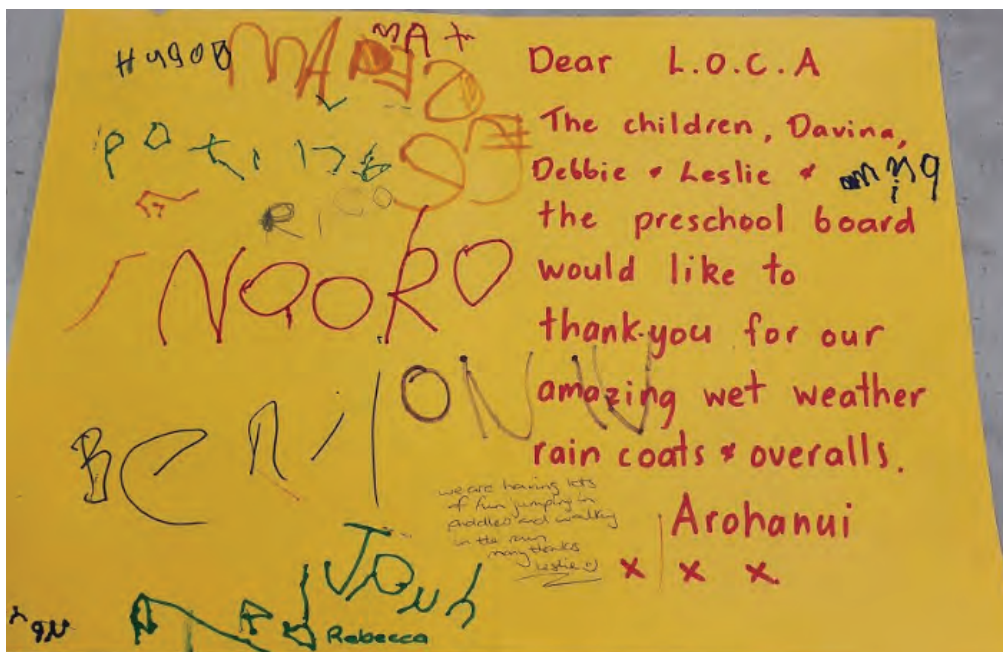 Hugo
MAT
RICO
NAORO
BERYl
Dear L.O.C.A
The children, Davina,
Debbie & Leslie &
the preschool board
would like to
thank-you for our
amazing wet weather
rain coats & overalls.
Arohanui
x x x
we are having lots
of fun jumping in
puddles and walking
in the rain
many thanks
Leslie :)
Rebecca